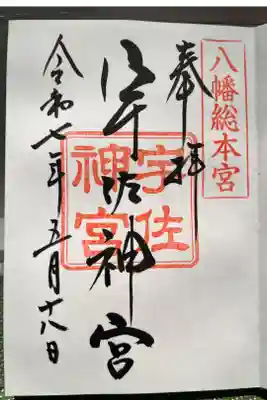 八幡総本宮
奉拝
宇佐神宮
宇佐神宮
令和七年五月十八日